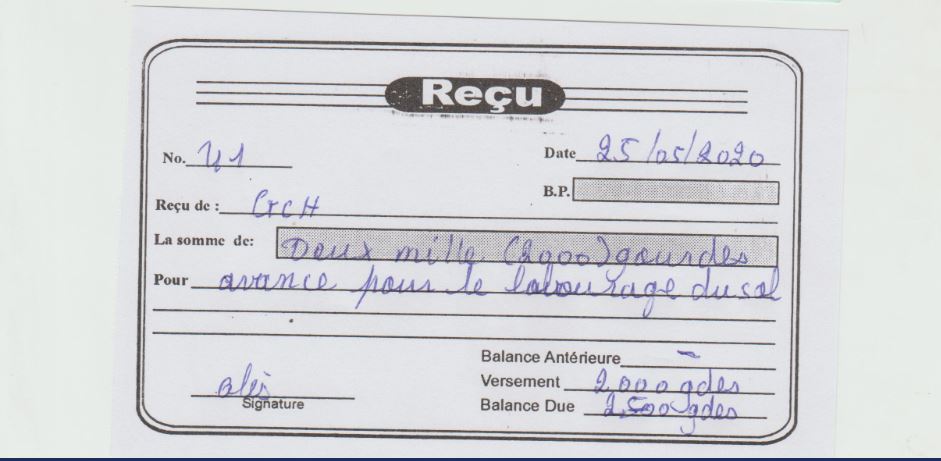 Reçu
No. 41
Date 25/05/2020
B.P.
Reçu de : CrcH
La somme de: Deux mille (2000) gourdes
Pour avance pour le labourage du sol
Balance Antérieure -
Versement 2,000 gdes
Balance Due 2,500 gdes
Signature